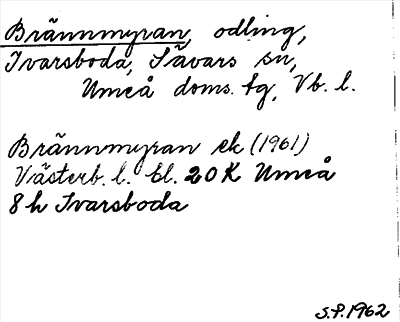 Brännmyran, odling,
Ivarsboda, Sävars sn,
Umeå doms. tg, Vb. l.
Brännmyran ek (1961)
Västerb. l. bl. 20K Umeå
8h Ivarsboda
S.P. 1962